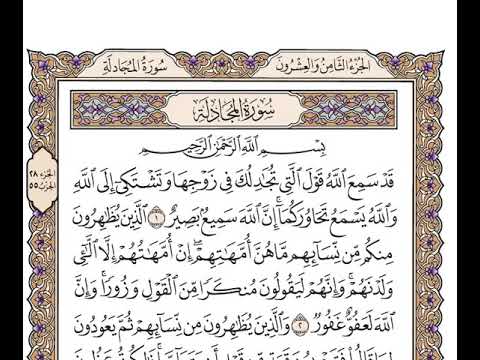 الجُزءُ الثَّامِنُ وَالعِشْرُونَ
سُورَةُ المُجَادَلَةِ
سُورَةُ المُجَادَلَةِ
بِسْمِ اللَّهِ الرَّحْمَٰنِ الرَّحِيمِ
قَدْ سَمِعَ اللَّهُ قَوْلَ الَّتِي تُجَادِلُكَ فِي زَوْجِهَا وَتَشْتَكِي إِلَى اللَّهِ
وَاللَّهُ يَسْمَعُ تَحَاوُرَكُمَا ۚ إِنَّ اللَّهَ سَمِيعٌ بَصِيرٌ ١ الَّذِينَ يُظَاهِرُونَ
مِنكُم مِّن نِّسَائِهِم مَّا هُنَّ أُمَّهَاتِهِمْ ۖ إِنْ أُمَّهَاتُهُمْ إِلَّا اللَّائِي
وَلَدْنَهُمْ ۚ وَإِنَّهُمْ لَيَقُولُونَ مُنكَرًا مِّنَ الْقَوْلِ وَزُورًا ۚ وَإِنَّ
اللَّهَ لَعَفُوٌّ غَفُورٌ ٢ وَالَّذِينَ يُظَاهِرُونَ مِن نِّسَائِهِمْ ثُمَّ يَعُودُونَ
الجزء ٢٨
الحزب ٥٥